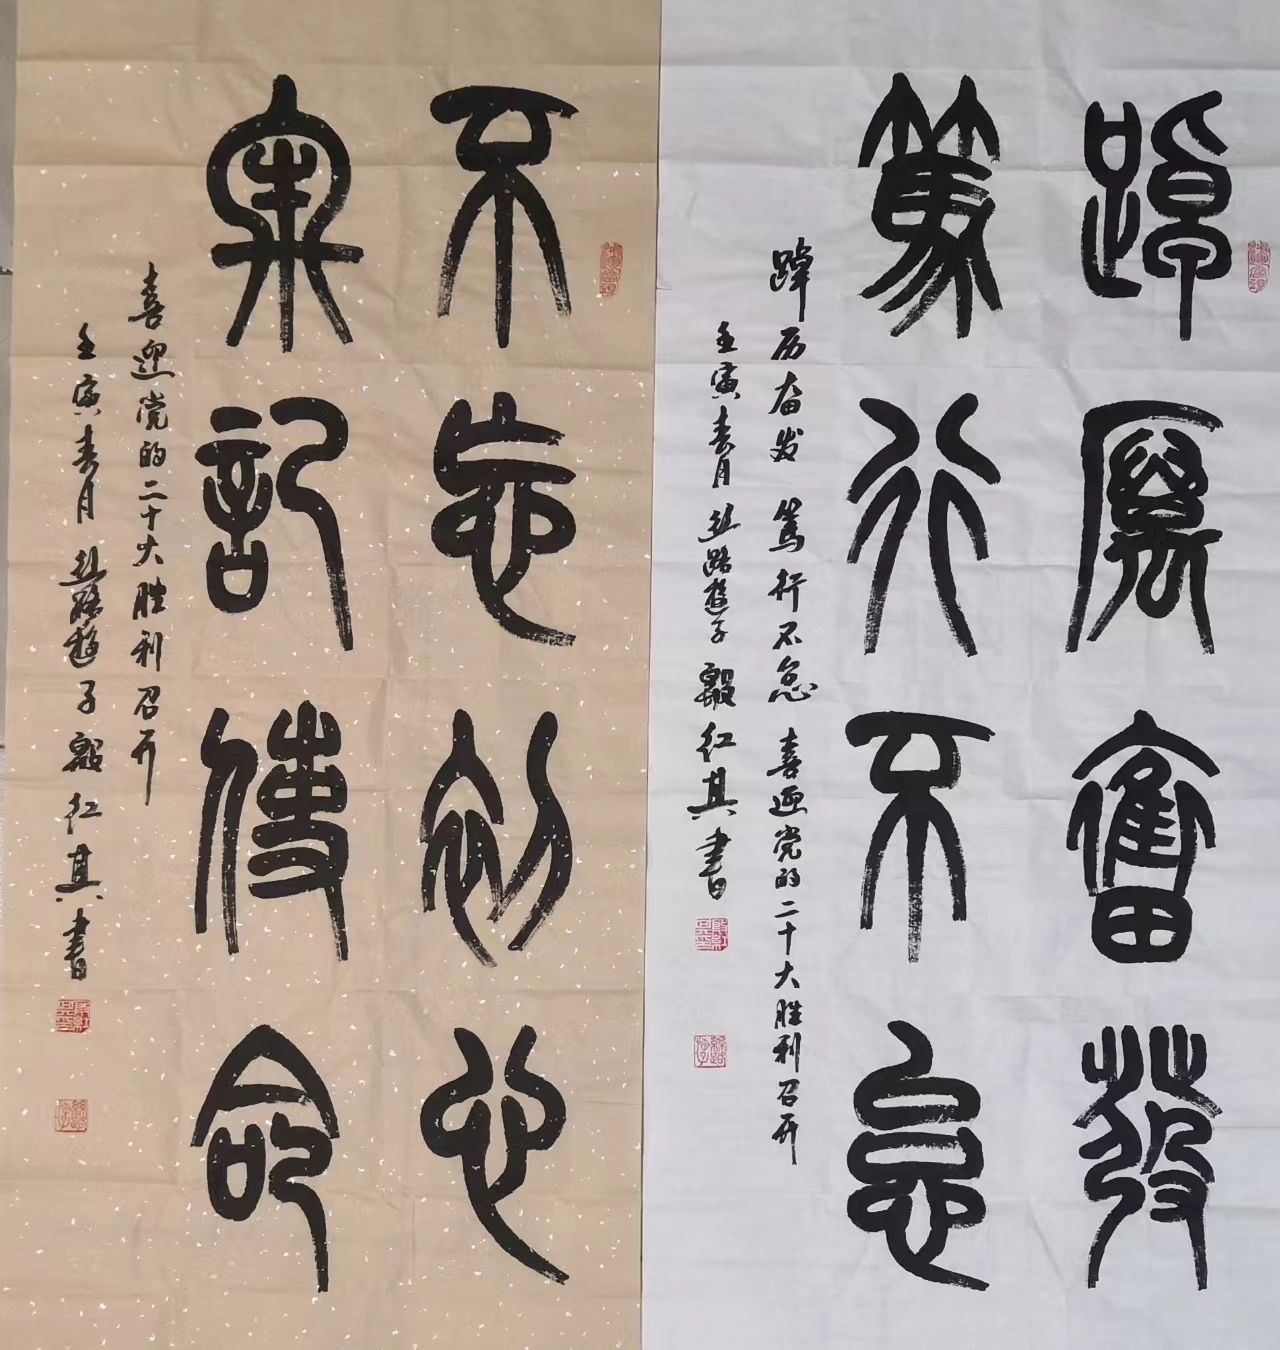 踔厲奮發
篤行不怠
踔厉奋发 篤行不怠 喜迎党的二十大胜利召开
壬寅春月 丝路遊子 殷红其書
不忘初心
牢記使命
喜迎党的二十大胜利召开
壬寅春月 丝路遊子 殷红其書